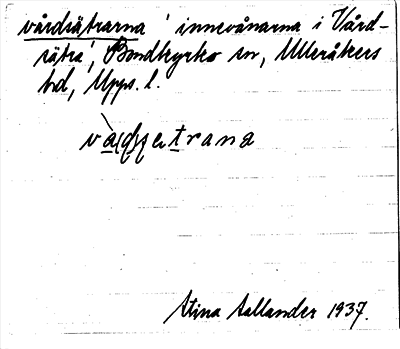 vårdsätrarna 'innevånarna i Vård-
sätra', Bondkyrko sn, Ulleråkers
hd, Upps. l.
Stina Aallander 1937.